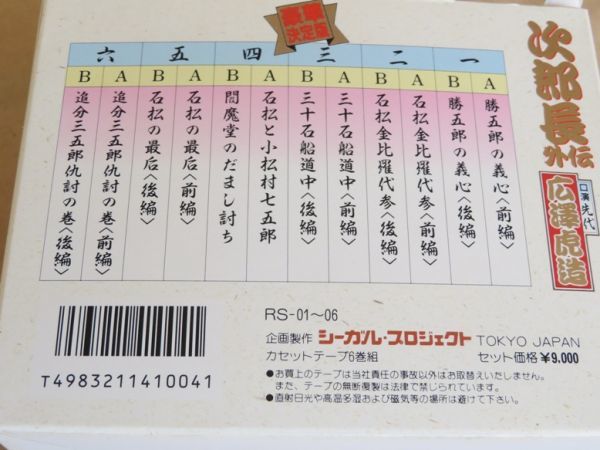 豪華
決定版
次郎長
外伝
口演 先代
広澤虎造
一
A 勝五郎の義心〈前編〉
B 勝五郎の義心〈後編〉
二
A 石松金比羅代参〈前編〉
B 石松金比羅代参〈後編〉
三
A 三十石船道中〈前編〉
B 三十石船道中〈後編〉
四
A 石松と小松村七五郎
B 閻魔堂のだまし討ち
五
A 石松の最后〈前編〉
B 石松の最后〈後編〉
六
A 追分三五郎仇討の巻〈前編〉
B 追分三五郎仇討の巻〈後編〉
RS-01〜06
企画製作 シーガル・プロジェクト TOKYO JAPAN
カセットテープ6巻組 セット価格 ¥9,000
●お買上のテープは当社責任の事故以外はお取替えいたしません。
また、テープの無断複製は法律で禁じられています。
●直射日光や高温多湿および磁気等の場所は避けて下さい。
T4983211410041